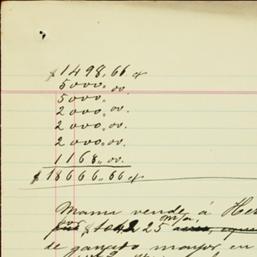 $1498.66 cf
5000.00.
5000.
2000.00.
2000.00.
2000.00.
1168.00.
$18666.66 cf
Mama vende á Her
$1042 25
de ganado mayor, en